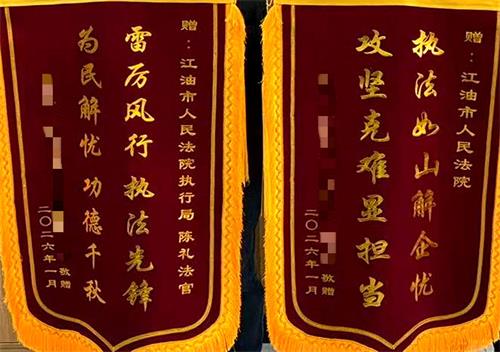 赠：江油市人民法院执行局 陈礼法官
雷厉风行执法先锋
为民解忧功德千秋
敬赠
二〇二六年一月
赠：江油市人民法院
执法如山解企忧
攻坚克难显担当
敬赠
二〇二六年一月